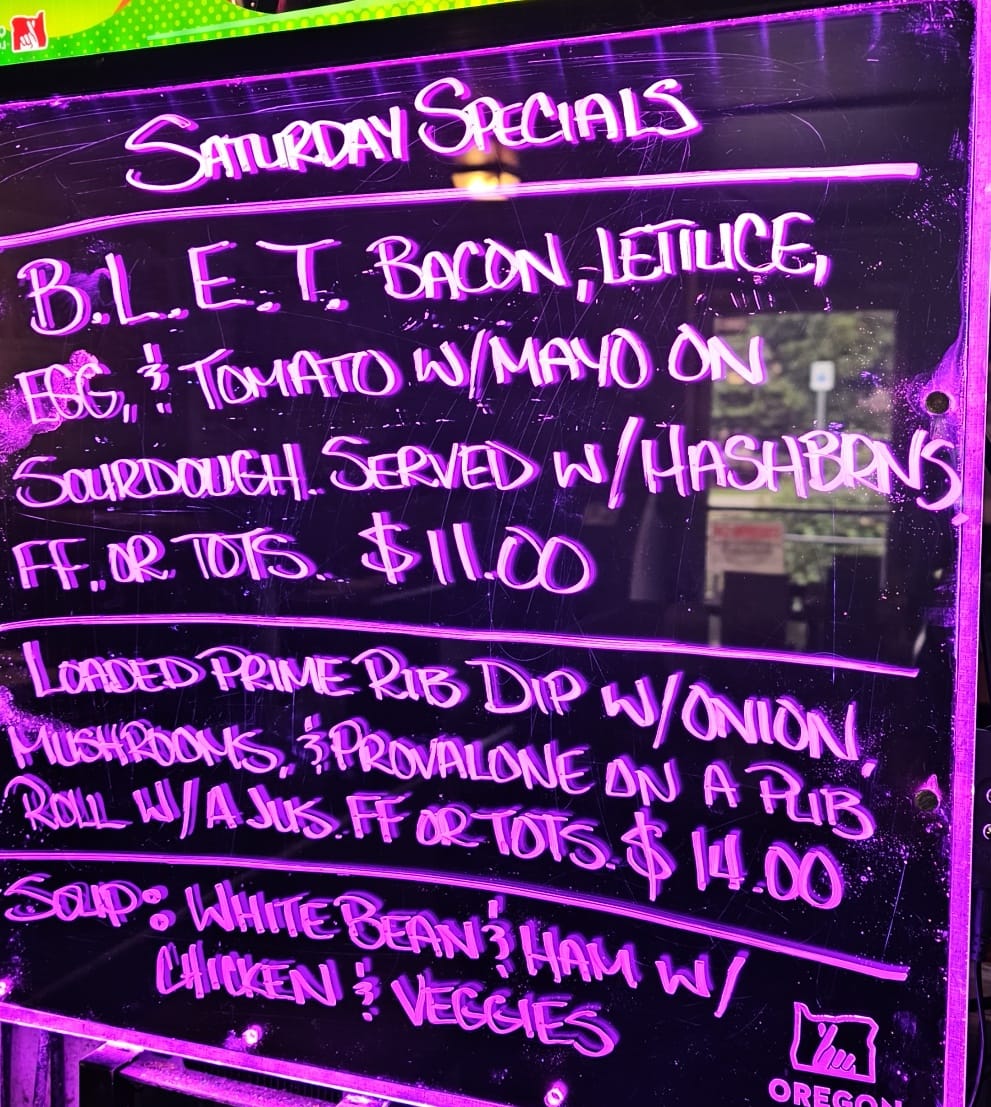 SATURDAY SPECIALS
B.L.E.T. BACON, LETTUCE,
EGG, & TOMATO W/MAYO ON
SOURDOUGH. SERVED W/HASHBRNS,
FF, OR TOTS. $11.00
LOADED PRIME RIB DIP W/ONION,
MUSHROOMS, & PROVALONE ON A PUB
ROLL W/A JUS. FF OR TOTS. $14.00
SOUP: WHITE BEAN & HAM W/
CHICKEN & VEGGIES
OREGON